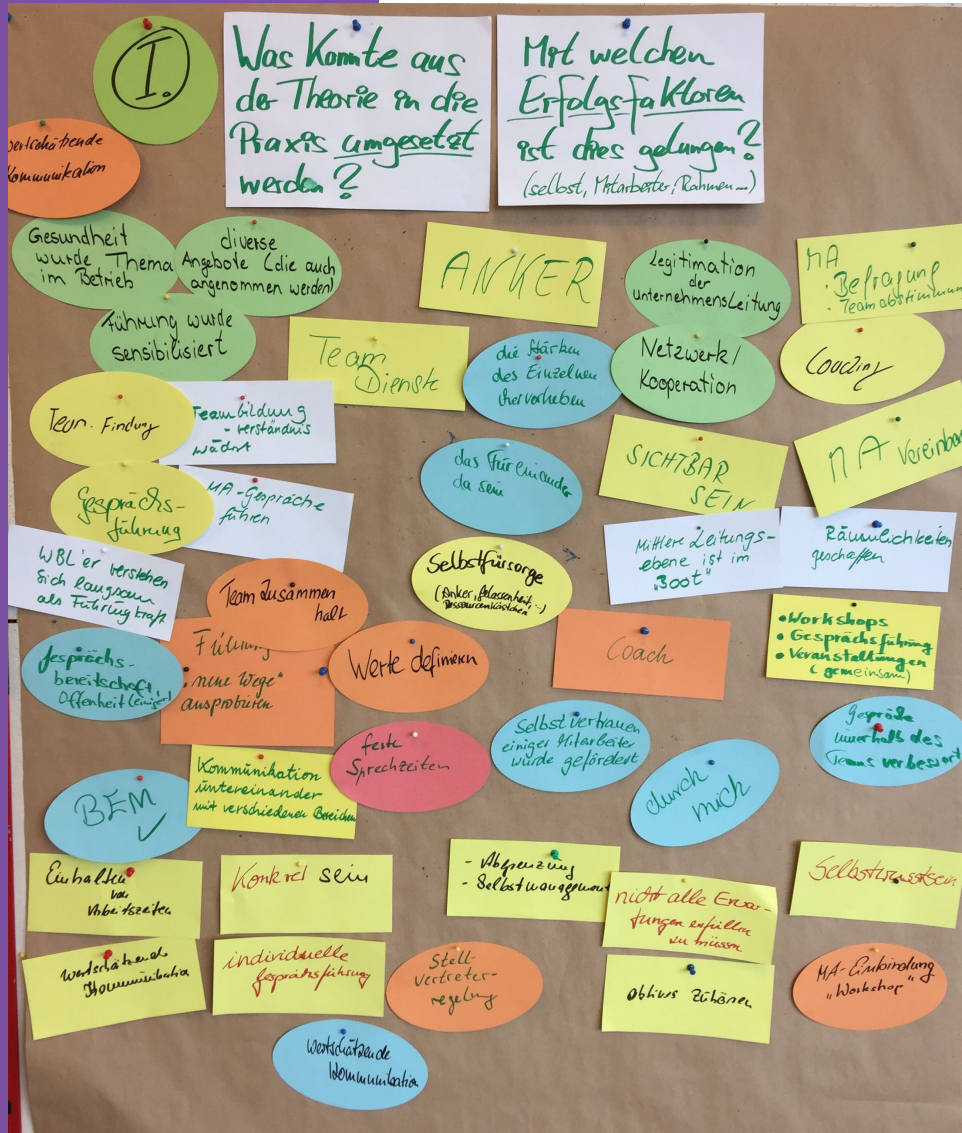 I.
Was Konnte aus
der Theorie in die
Praxis umgesetzt
werden?
Mit welchen
Erfolgsfaktoren
ist dies gelungen?
(selbst, Mitarbeiter, Rahmen...)
wertschätzende
Kommunikation
Gesundheit
wurde Thema
im Betrieb
diverse
Angebote (die auch
angenommen werden)
Führung wurde
sensibilisiert
ANKER
Legitimation
der
Unternehmensleitung
MA
· Befragung
Teamabstimmun
Team
Dienste
die Stärken
des Einzelnen
hervorheben
Netzwerk/
Kooperation
Coaching
Team. Findung
Teambildung
- verständnis
wächst
das Füreinander
da sein
SICHTBAR
SEIN
MA Vereinbar
Gesprächs-
führung
MA-Gespräche
führen
Mittlere Leitungs-
ebene ist im
"Boot"
Räumlichkeiten
geschaffen
WBL'er verstehen
sich langsam
als Führungkraft
Team Zusammen
halt
Selbstfürsorge
(Anker, Gelassenheit,...)
Ressourcenkästchen
Gesprächs-
bereitschaft,
Offenheit (einiger)
Führung
"neue Wege"
ausprobieren
Werte definieren
Coach
• Workshops
• Gesprächsführung
• Veranstaltungen
(gemeinsam)
BEM
✓
Kommunikation
untereinander
mit verschiedenen Bereichen
feste
Sprechzeiten
Selbstvertrauen
einiger Mitarbeiter
wurde gefördert
durch
mich
Gespräche
innerhalb des
Teams verbessert
Einhalten
von
Arbeitszeiten
Konkret sein
- Abgrenzung
- Selbstmanagement
nicht alle Erwar-
tungen erfüllen
zu müssen
Selbstbewusstsein
wertschätzende
Kommunikation
individuelle
Gesprächsführung
Stell-
vertreter-
regelung
aktives Zuhören
MA-Einbindung
"Workshop"
wertschätzende
Kommunikation